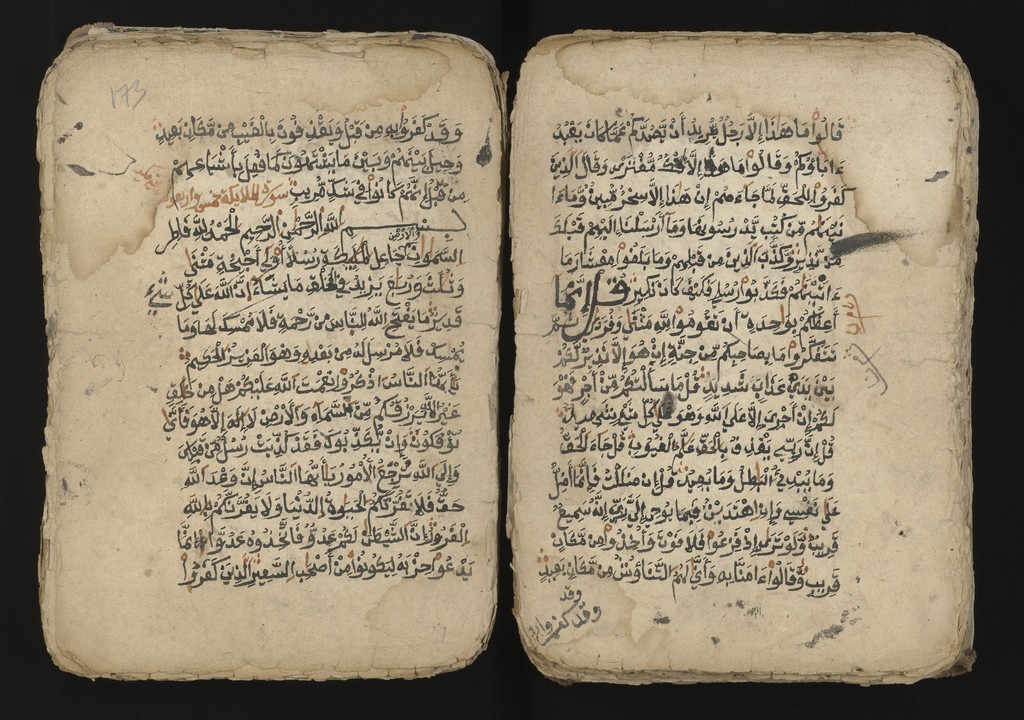 قالوا ما هذا إلا رجل يريد أن يصدكم عما كان يعبد
ءاباؤكم وقالوا ما هذا إلا إفك مفترى وقال الذين
كفروا للحق لما جاءهم إن هذا إلا سحر مبين وما ءا
تينهم من كتب يدرسونها وما أرسلنا إليهم قبلك
من نذير وكذب الذين من قبلهم وما بلغوا معشار ما
ءاتينهم فكذبوا رسلي فكيف كان نكير قل إنما
أعظكم بوحدة أن تقوموا لله مثنى وفردى ثم
تتفكروا ما بصاحبكم من جنة إن هو إلا نذير لكم
بين يدي عذاب شديد قل ما سألتكم من أجر فهو
لكم إن أجري إلا على الله وهو على كل شيء شهيد
قل إن ربي يقذف بالحق علم الغيوب قل جاء الحق
وما يبدئ البطل وما يعيد قل إن ضللت فإنما أضل
على نفسي وإن اهتديت فبما يوحي إلي ربي إنه سميع
قريب ولو ترى إذ فزعوا فلا فوت وأخذوا من مكان
قريب وقالوا ءامنا به وأنى لهم التناوش من مكان بعيد
وقد
وقد كفروا
173
وقد كفروا به من قبل ويقذفون بالغيب من مكان بعيد
وحيل بينهم وبين ما يشتهون كما فعل بأشياعهم
من قبل إنهم كانوا في شك مريب سورة الملايكة خمس وأربعون
بسم الله الرحمن الرحيم الحمد لله فاطر
والأرض
السموت جاعل الملئكة رسلا أولي أجنحة مثنى
وثلث وربع يزيد في الخلق ما يشاء إن الله على كل شيء
قدير ما يفتح الله للناس من رحمة فلا ممسك لها وما
يمسك فلا مرسل له من بعده وهو العزيز الحكيم
يأيها الناس اذكروا نعمت الله عليكم هل من خلق
غير الله يرزقكم من السماء والأرض لا إله إلا هو فأنى
تؤفكون وإن يكذبوك فقد كذبت رسل من قبلك
وإلى الله ترجع الأمور يأيها الناس إن وعد الله
حق فلا تغرنكم الحيوة الدنيا ولا يغرنكم بالله
الغرور إن الشيطن لكم عدو فاتخذوه عدوا إنما
يدعوا حزبه ليكونوا من أصحب السعير الذين كفروا